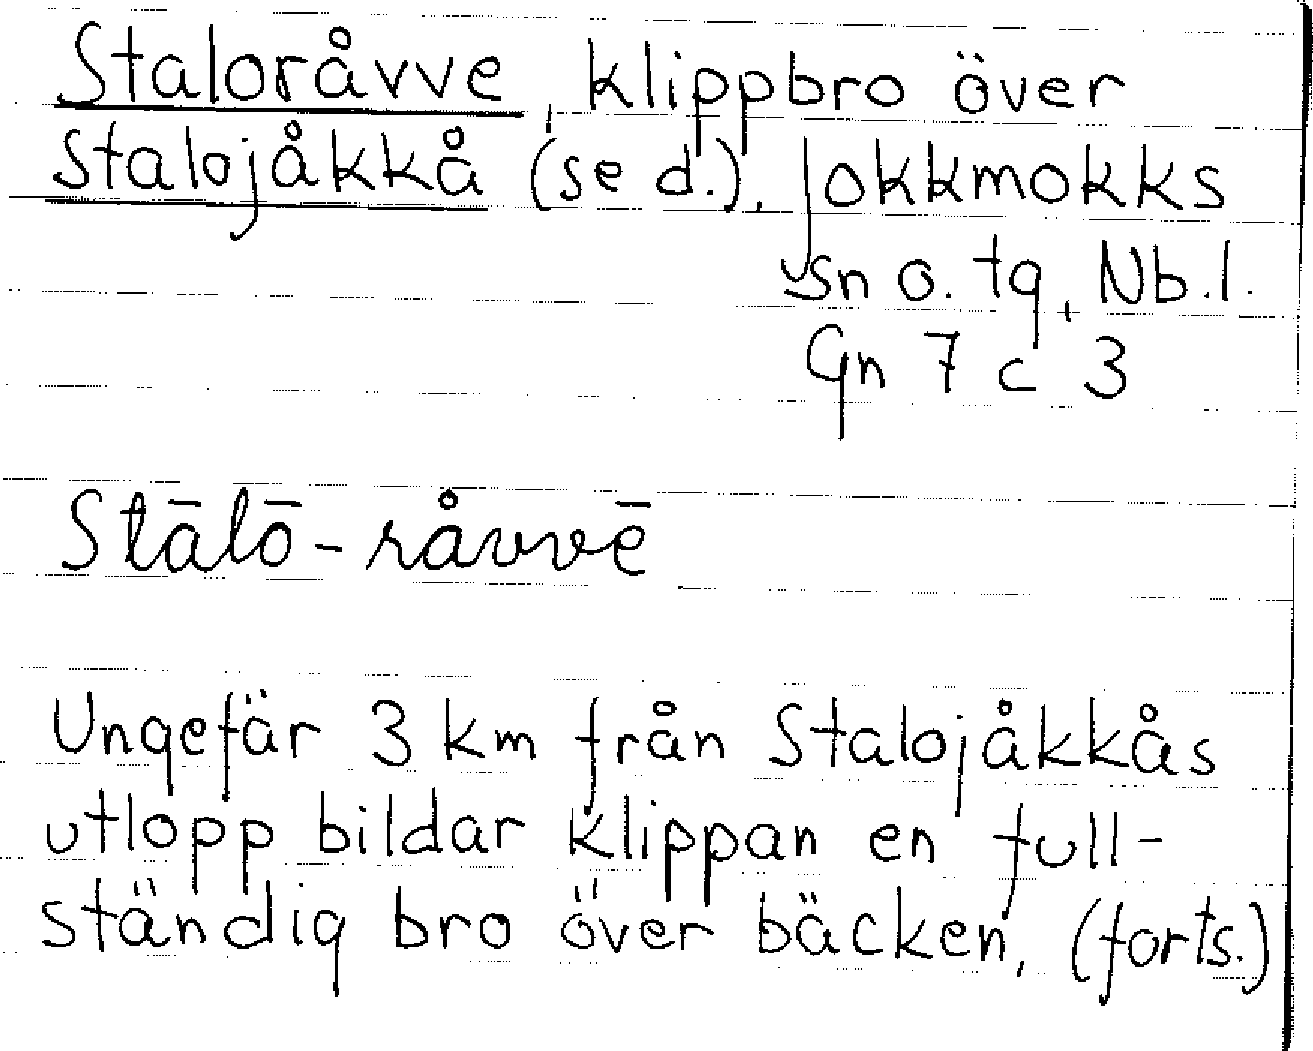 Staloråvve, klippbro över
Stalojåkkå (se d.), Jokkmokks
sn o. tg, Nb.l.
Gn 7 c 3
Stālō-råvvē
Ungefär 3 km från Stalojåkkås
utlopp bildar klippan en full-
ständig bro över bäcken, (forts.)